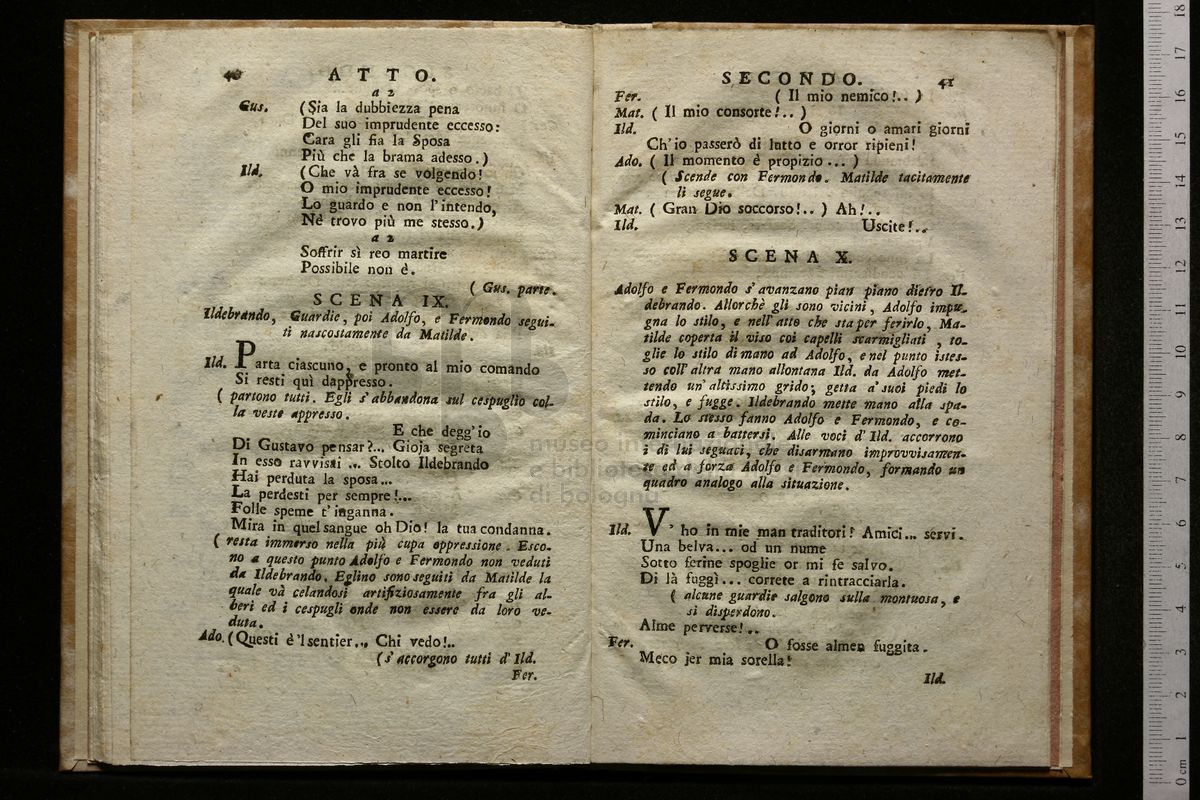 40 ATTO.
a 2
Gus. (Sia la dubbiezza pena
Del suo imprudente eccesso:
Cara gli fia la Sposa
Più che la brama adesso.)
Ild. (Che và fra se volgendo!
O mio imprudente eccesso!
Lo guardo e non l'intendo,
Nè trovo più me stesso.)
a 2
Soffrir sì reo martire
Possibile non è.
( Gus. parte.
SCENA IX.
Ildebrando, Guardie, poi Adolfo, e Fermondo segui-
ti nascostamente da Matilde.
Ild. Parta ciascuno, e pronto al mio comando
Si resti quì dappresso.
( partono tutti. Egli s'abbandona sul cespuglio col-
la veste appresso.
E che degg'io
Di Gustavo pensar?... Gioja segreta
In esso ravvisai ... Stolto Ildebrando
Hai perduta la sposa...
La perdesti per sempre!...
Folle speme t'inganna.
Mira in quel sangue oh Dio! la tua condanna.
( resta immerso nella più cupa oppressione. Esco-
no a questo punto Adolfo e Fermondo non veduti
da Ildebrando. Eglino sono seguiti da Matilde la
quale và celandosi artifiziosamente fra gli al-
beri ed i cespugli onde non essere da loro ve-
duta.
Ado. (Questi è 'l sentier... Chi vedo!..
(s'accorgono tutti d'Ild.
Fer.
SECONDO. 41
Fer. ( Il mio nemico!.. )
Mat. ( Il mio consorte!.. )
Ild. O giorni o amari giorni
Ch'io passerò di lutto e orror ripieni!
Ado. ( Il momento è propizio ... )
( Scende con Fermondo. Matilde tacitamente
li segue.
Mat. ( Gran Dio soccorso!.. ) Ah!..
Ild. Uscite!..
SCENA X.
Adolfo e Fermondo s'avanzano pian piano dietro Il-
debrando. Allorchè gli sono vicini, Adolfo impu-
gna lo stilo, e nell'atto che sta per ferirlo, Ma-
tilde coperta il viso coi capelli scarmigliati, to-
glie lo stilo di mano ad Adolfo, e nel punto istes-
so coll'altra mano allontana Ild. da Adolfo met-
tendo un'altissimo grido; getta a' suoi piedi lo
stilo, e fugge. Ildebrando mette mano alla spa-
da. Lo stesso fanno Adolfo e Fermondo, e co-
minciano a battersi. Alle voci d'Ild. accorrono
i di lui seguaci, che disarmano improvvisamen-
te ed a forza Adolfo e Fermondo, formando un
quadro analogo alla situazione.
Ild. V'ho in mie man traditori! Amici... servi.
Una belva... od un nume
Sotto ferine spoglie or mi fe salvo.
Di là fuggì... correte a rintracciarla.
( alcune guardie salgono sulla montuosa, e
si disperdono.
Alme perverse!..
Fer. O fosse almen fuggita.
Meco jer mia sorella!
Ild.